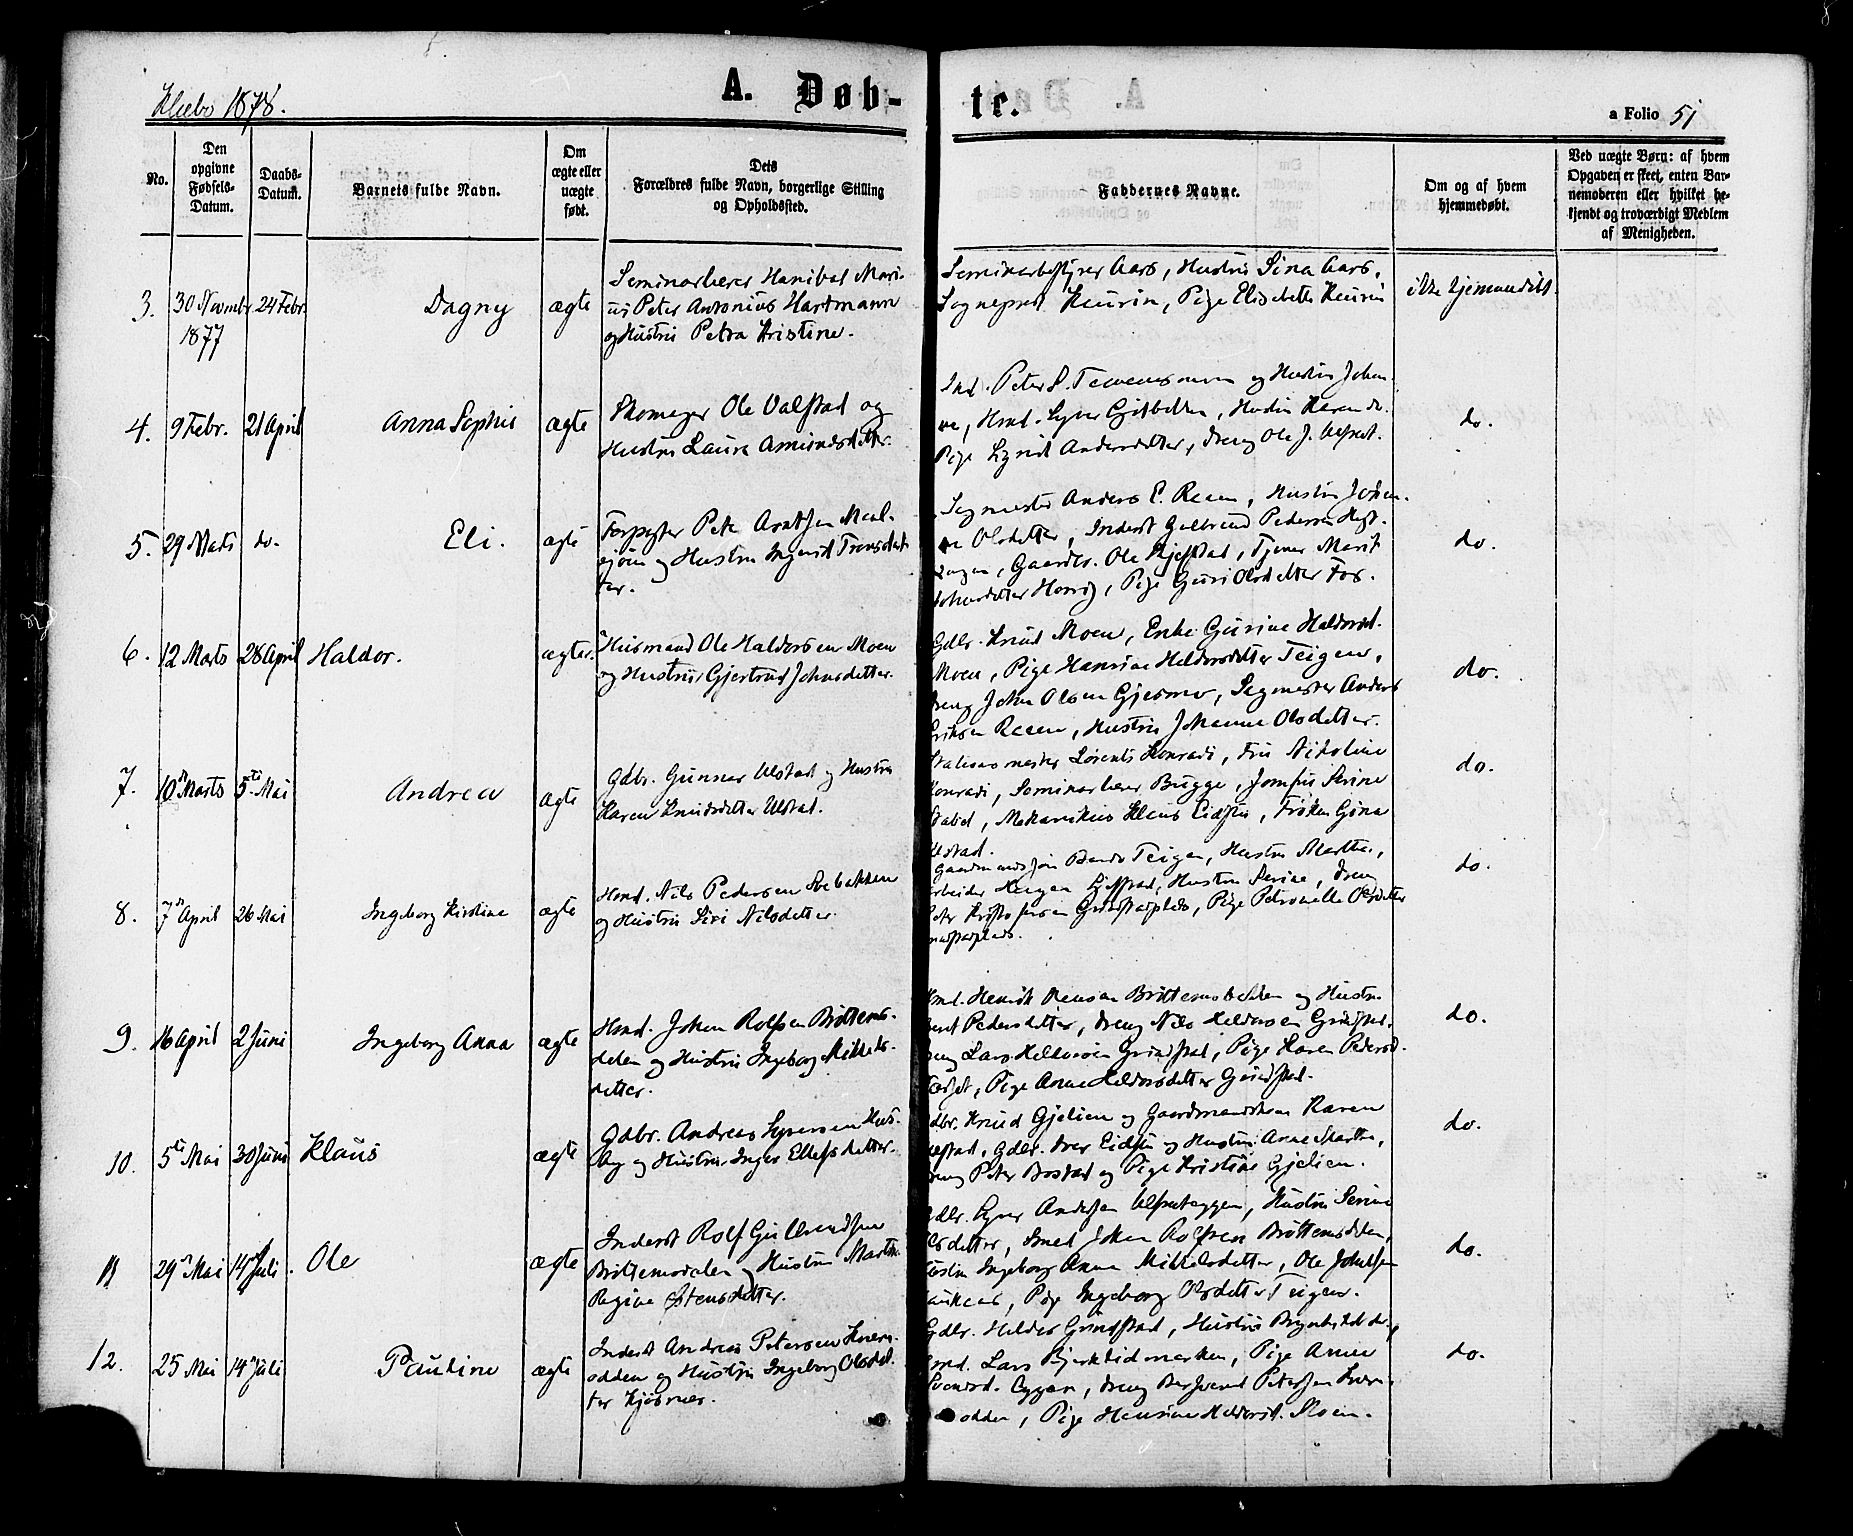 Klæbo 1878.
A. Døb-
te.
a Folio 51
No.
Den opgivne Fødsels-Datum.
Daabs-Datum.
Barnets fulde Navn.
Om ægte eller uægte født.
Dets Forældres fulde Navn, borgerlige Stilling og Opholdssted.
Faddernes Navne.
Om og af hvem hjemmedøbt.
Ved uægte Børn: af hvem Opgaven er skeet, enten Barnemoderen eller hvilket bekjendt og troværdigt Medlem af Menigheden.
3. 30 Novmbr 24 Febr. Dagny ægte
1877
Seminarlærer Hanibal Mari-
us Peter Antonius Hartmann
og Hustru Petra Kristine.
Seminarbestyrer Aars, Hustru Sina Aars,
Sogneprest Keurin, Pige Elisabeth Keurin
ikke hjemmedøbt.
4. 9 Febr. 21 April Anna Sophie ægte
Skomager Ole Valstad og
Hustru Laura
Ind. Peter og Hustru Johan-
ne, Hmd. Hustru Karen do.
Pige Sigrid Andersdatter, Dreng Ole J.
do.
5. 29 Marts do. Eli. ægte
Peter Arntsen
og Hustru Ingeborg
ter.
Sagmester Anders E. Reen, Hustru Johan-
ne Olsdatter, Inderst Gulbrand Pedersen
Gaardbr. Ole Tjener Marit
Johnsdatter Pige Guri Olsdatter Fos.
do.
6. 12 Marts 28 April Haldor. ægte
Husmand Ole Haldorsen Moen
og Hustru Gjertrud Johnsdatter.
Gdbr. Knud Moen, Enke Gurine Haldorsd.
Moen, Pige Hansine Haldorsdatter Teigen,
Dreng John Olsen Gjesmo, Sagmester Anders
Eriksen Reen, Hustru Johanne Olsdatter.
do.
7. 10de Marts 5te Mai Andrea ægte
Gdbr. Gunnar Ulstad og Hustru
Karen Knudsdatter Ulstad.
Stationsmester Lorents Konradi, Fru Nikoline
Konradi, Seminarlærer Bugge, Jomfru Serine
Mekanikus Klaus Eidstu, Frøken Gina
Ulstad.
do.
8. 7de April 26 Mai Ingeborg Kirstine ægte
Hmd. Nils Pedersen
og Hustru Siri Nilsdatter.
Teigen, Hustru Marthe,
Arbeider Hustru Serine, Dreng
Peter Kristofersen Grindstadplads, Pige Petronelle Olsdatter
do.
9. 16 April 2 Juni Ingeborg Anna ægte
Hmd. Johan Rolfsen Bröttems-
dalen og Hustru Ingeborg Mikkels-
datter.
Hmd. Henrik Bröttemsbakken og Hustru
Berit Pedersdatter, Dreng Nils Haldorsen Grindstad,
Dreng Lars Haldorsen Grindstad, Pige Karen Pedersd.
Pige Anne Haldorsdatter Grindstad.
do.
10. 5te Mai 30 Juni Klaus ægte
Gdbr. Andreas Syversen Hus-
by og Hustru Inger Ellefsdatter.
Gdbr. Knud Gjelien og Gaardmandskone Karen
Ulstad, Gdbr. Iver Eidstu og Hustru Anne Marthe,
Dreng Peter Bostad og Pige Kristine Gjelien.
do.
11 29de Mai 14de Juli. Ole ægte
Inderst Rolf Gulbrandsen
Bröttemsdalen og Hustru Martha
Regine Østensdatter.
Gdbr. Syver Andersen Hustru Serine
Olsdatter, Smed Johan Rolfsen Bröttemsdalen,
Hustru Ingeborg Anna Mikkelsdatter, Ole Johnsen
Pige Ingeborg Olsdatter Teigen.
do.
12. 25 Mai 14de Juli Pauline ægte
Inderst Andreas Petersen Kværn-
odden og Hustru Ingeborg Olsdat-
ter
Gdbr. Haldor Grindstad, Hustru
Hmd. Lars Bjerklidmarken, Pige Anne
Dreng Petersen Kværn-
odden, Pige Hansine Haldorsd. Moen.
do.